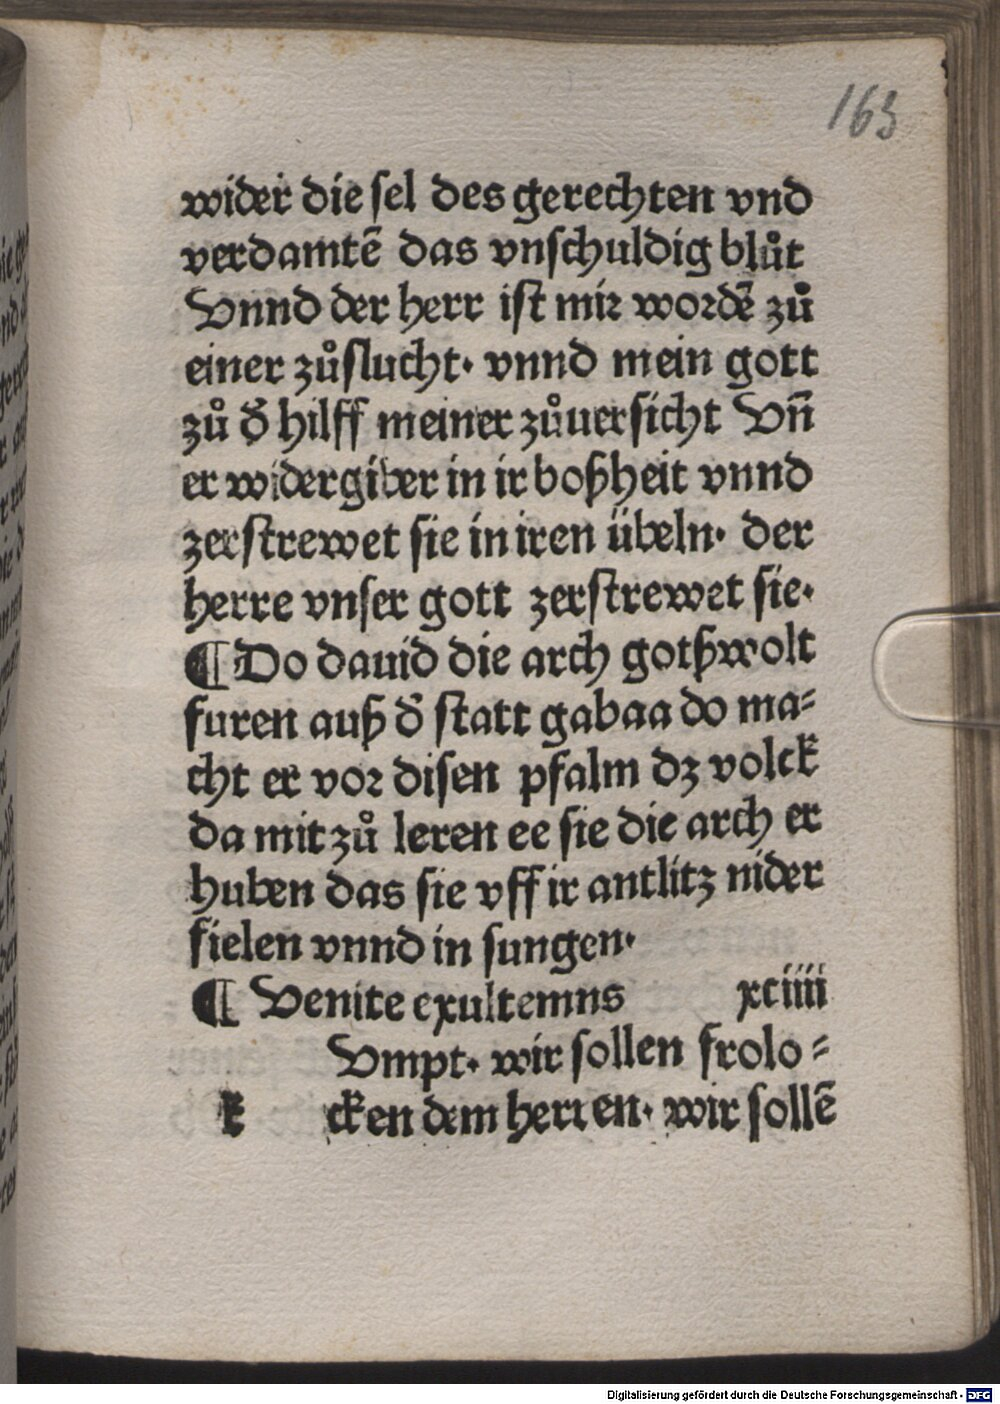 163
wider die sel des gerechten vnd
verdamtē das vnschuldig blůt
Vnnd der herr ist mir wordē zů
einer zůflucht· vnnd mein gott
zů d̄ hilff meiner zůuersicht Vn̄
er widergiber in ir boßheit vnnd
zerstrewet sie in iren übeln· der
herre vnser gott zerstrewet sie·
¶ Do dauid die arch gotß wolt
furen auß d̄ statt gabaa do ma⸗
cht er vor disen psalm dz volck
da mit zů leren ee sie die arch er
huben das sie vff ir antlitz nider
fielen vnnd in sungen·
¶ Venite exultemns xciiii
Vmpt· wir sollen frolo⸗
k cken dem herren· wir sollē
Digitalisierung gefördert durch die Deutsche Forschungsgemeinschaft - DFG